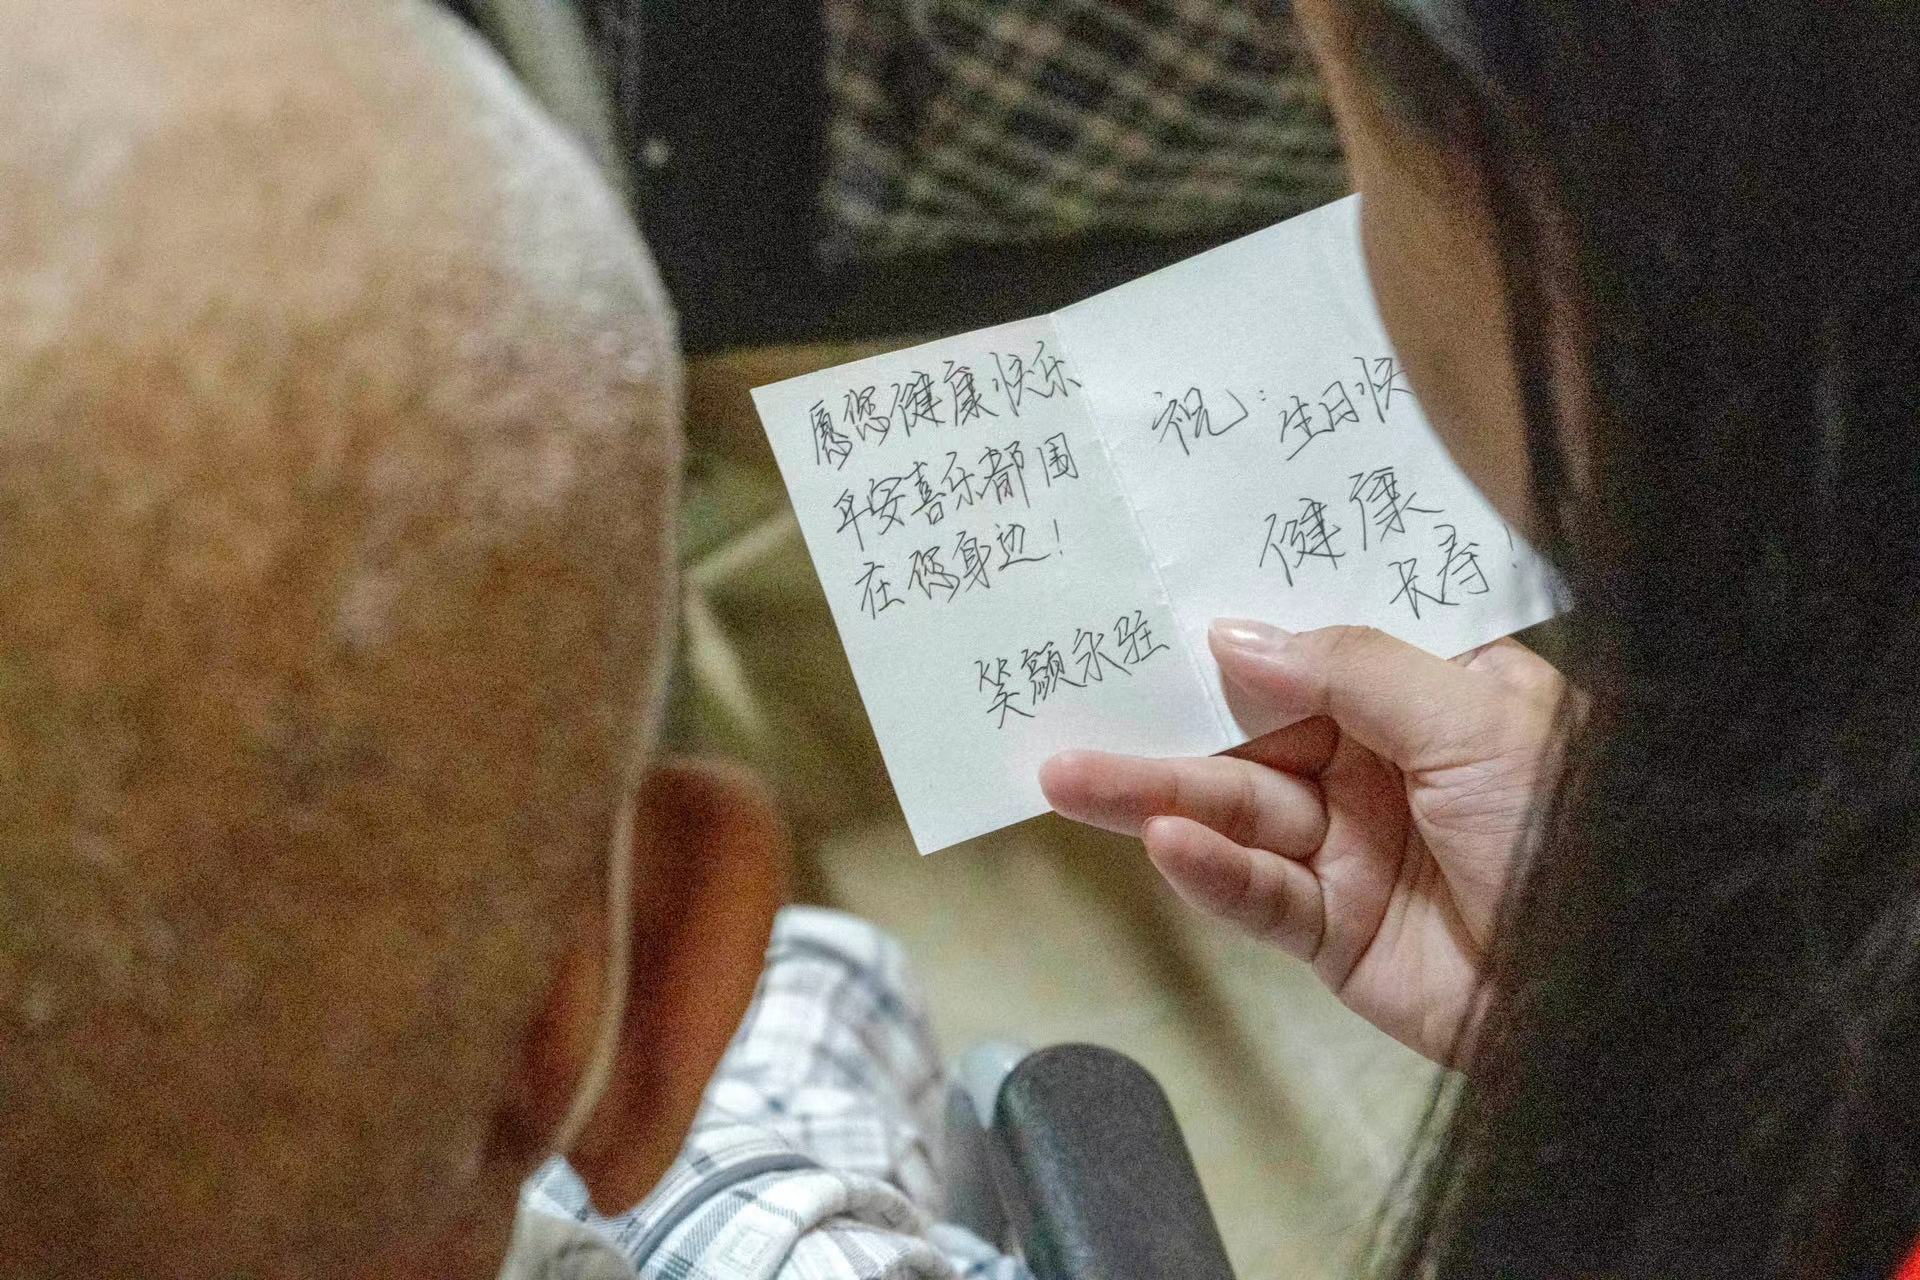 愿您健康快乐
平安喜乐都围
在您身边！
笑颜永驻
祝：生日快
健康
长寿！